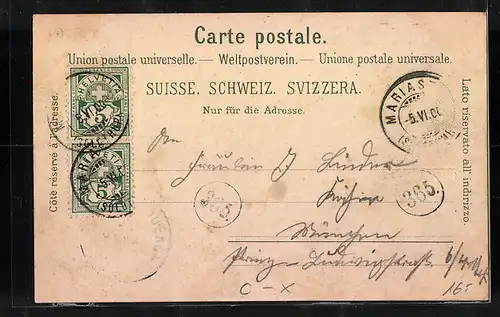 Carte postale.
Union postale universelle. — Weltpostverein. — Unione postale universale.
SUISSE. SCHWEIZ. SVIZZERA.
Nur für die Adresse.
Côté réservé à l'adresse.
Lato riservato all' indirizzo.
HELVETIA
5
MARIAS
-5.VI.0
An
Fräulein J Linder
365.
365.
München
Prinz-Ludwigstraße
C-X
16.